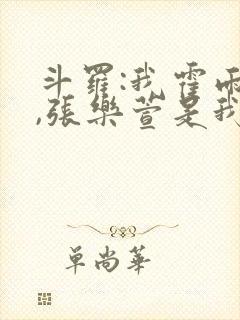 斗羅:我霍雨
,張樂萱是我
單尚華